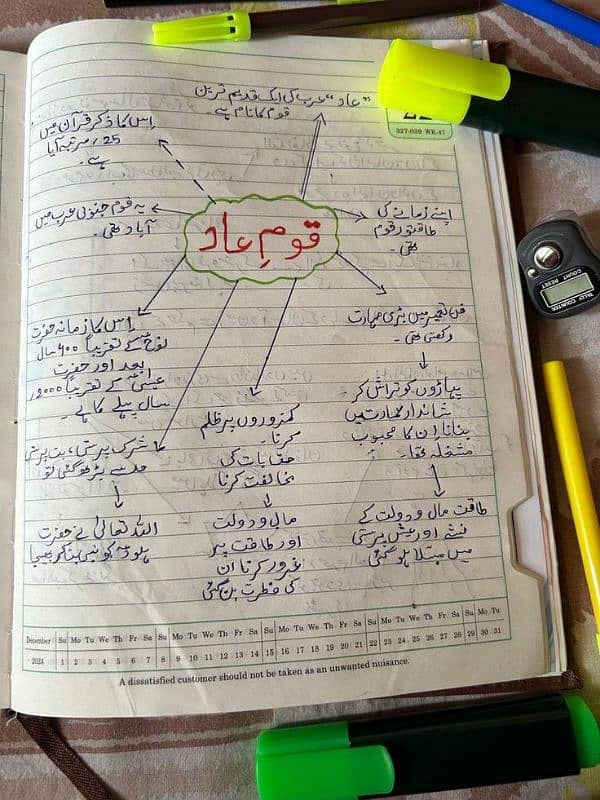 "عاد" عرب کی ایک قدیم ترین
قوم کا نام ہے۔
22
327-039 WK-47
اس کا ذکر قرآن میں
25، مرتبہ آیا
ہے۔
یہ قوم جنوبی عرب میں
آباد تھی۔
اپنے زمانے کی
طاقتور قوم
تھی۔
قومِ عاد
فن تعمیر میں بڑی مہارت
رکھتی تھی۔
پہاڑوں کو تراش کر
شاندار عمارتیں
بنانا ان کا محبوب
مشغلہ تھا۔
طاقت مال و دولت کے
نشے اور عیش پرستی
میں مبتلا ہو گئی
کمزوروں پر ظلم
کرنا۔
حق بات کی
مخالفت کرنا
مال و دولت
اور طاقت پر
غرور کرنا ان
کی فطرت بن گئی
اس کا زمانہ حضرت
نوحؑ کے تقریباً ۶۰۰ سال
بعد اور حضرت
عیسیٰؑ کے تقریباً 2000،
سال پہلے کا ہے۔
شرک پرستی، بت پرستی
حد سے بڑھ گئی تو
اللہ تعالیٰ نے حضرت
ہودؑ کو نبی بنا کر بھیجا
December Su Mo Tu We Th Fr Sa Su Mo Tu We Th Fr Sa Su Mo Tu We Th Fr Sa Su Mo Tu We Th Fr Sa Su Mo Tu
2024 1 2 3 4 5 6 7 8 9 10 11 12 13 14 15 16 17 18 19 20 21 22 23 24 25 26 27 28 29 30 31
A dissatisfied customer should not be taken as an unwanted nuisance.
TALLY COUNTER
COUNT RESET